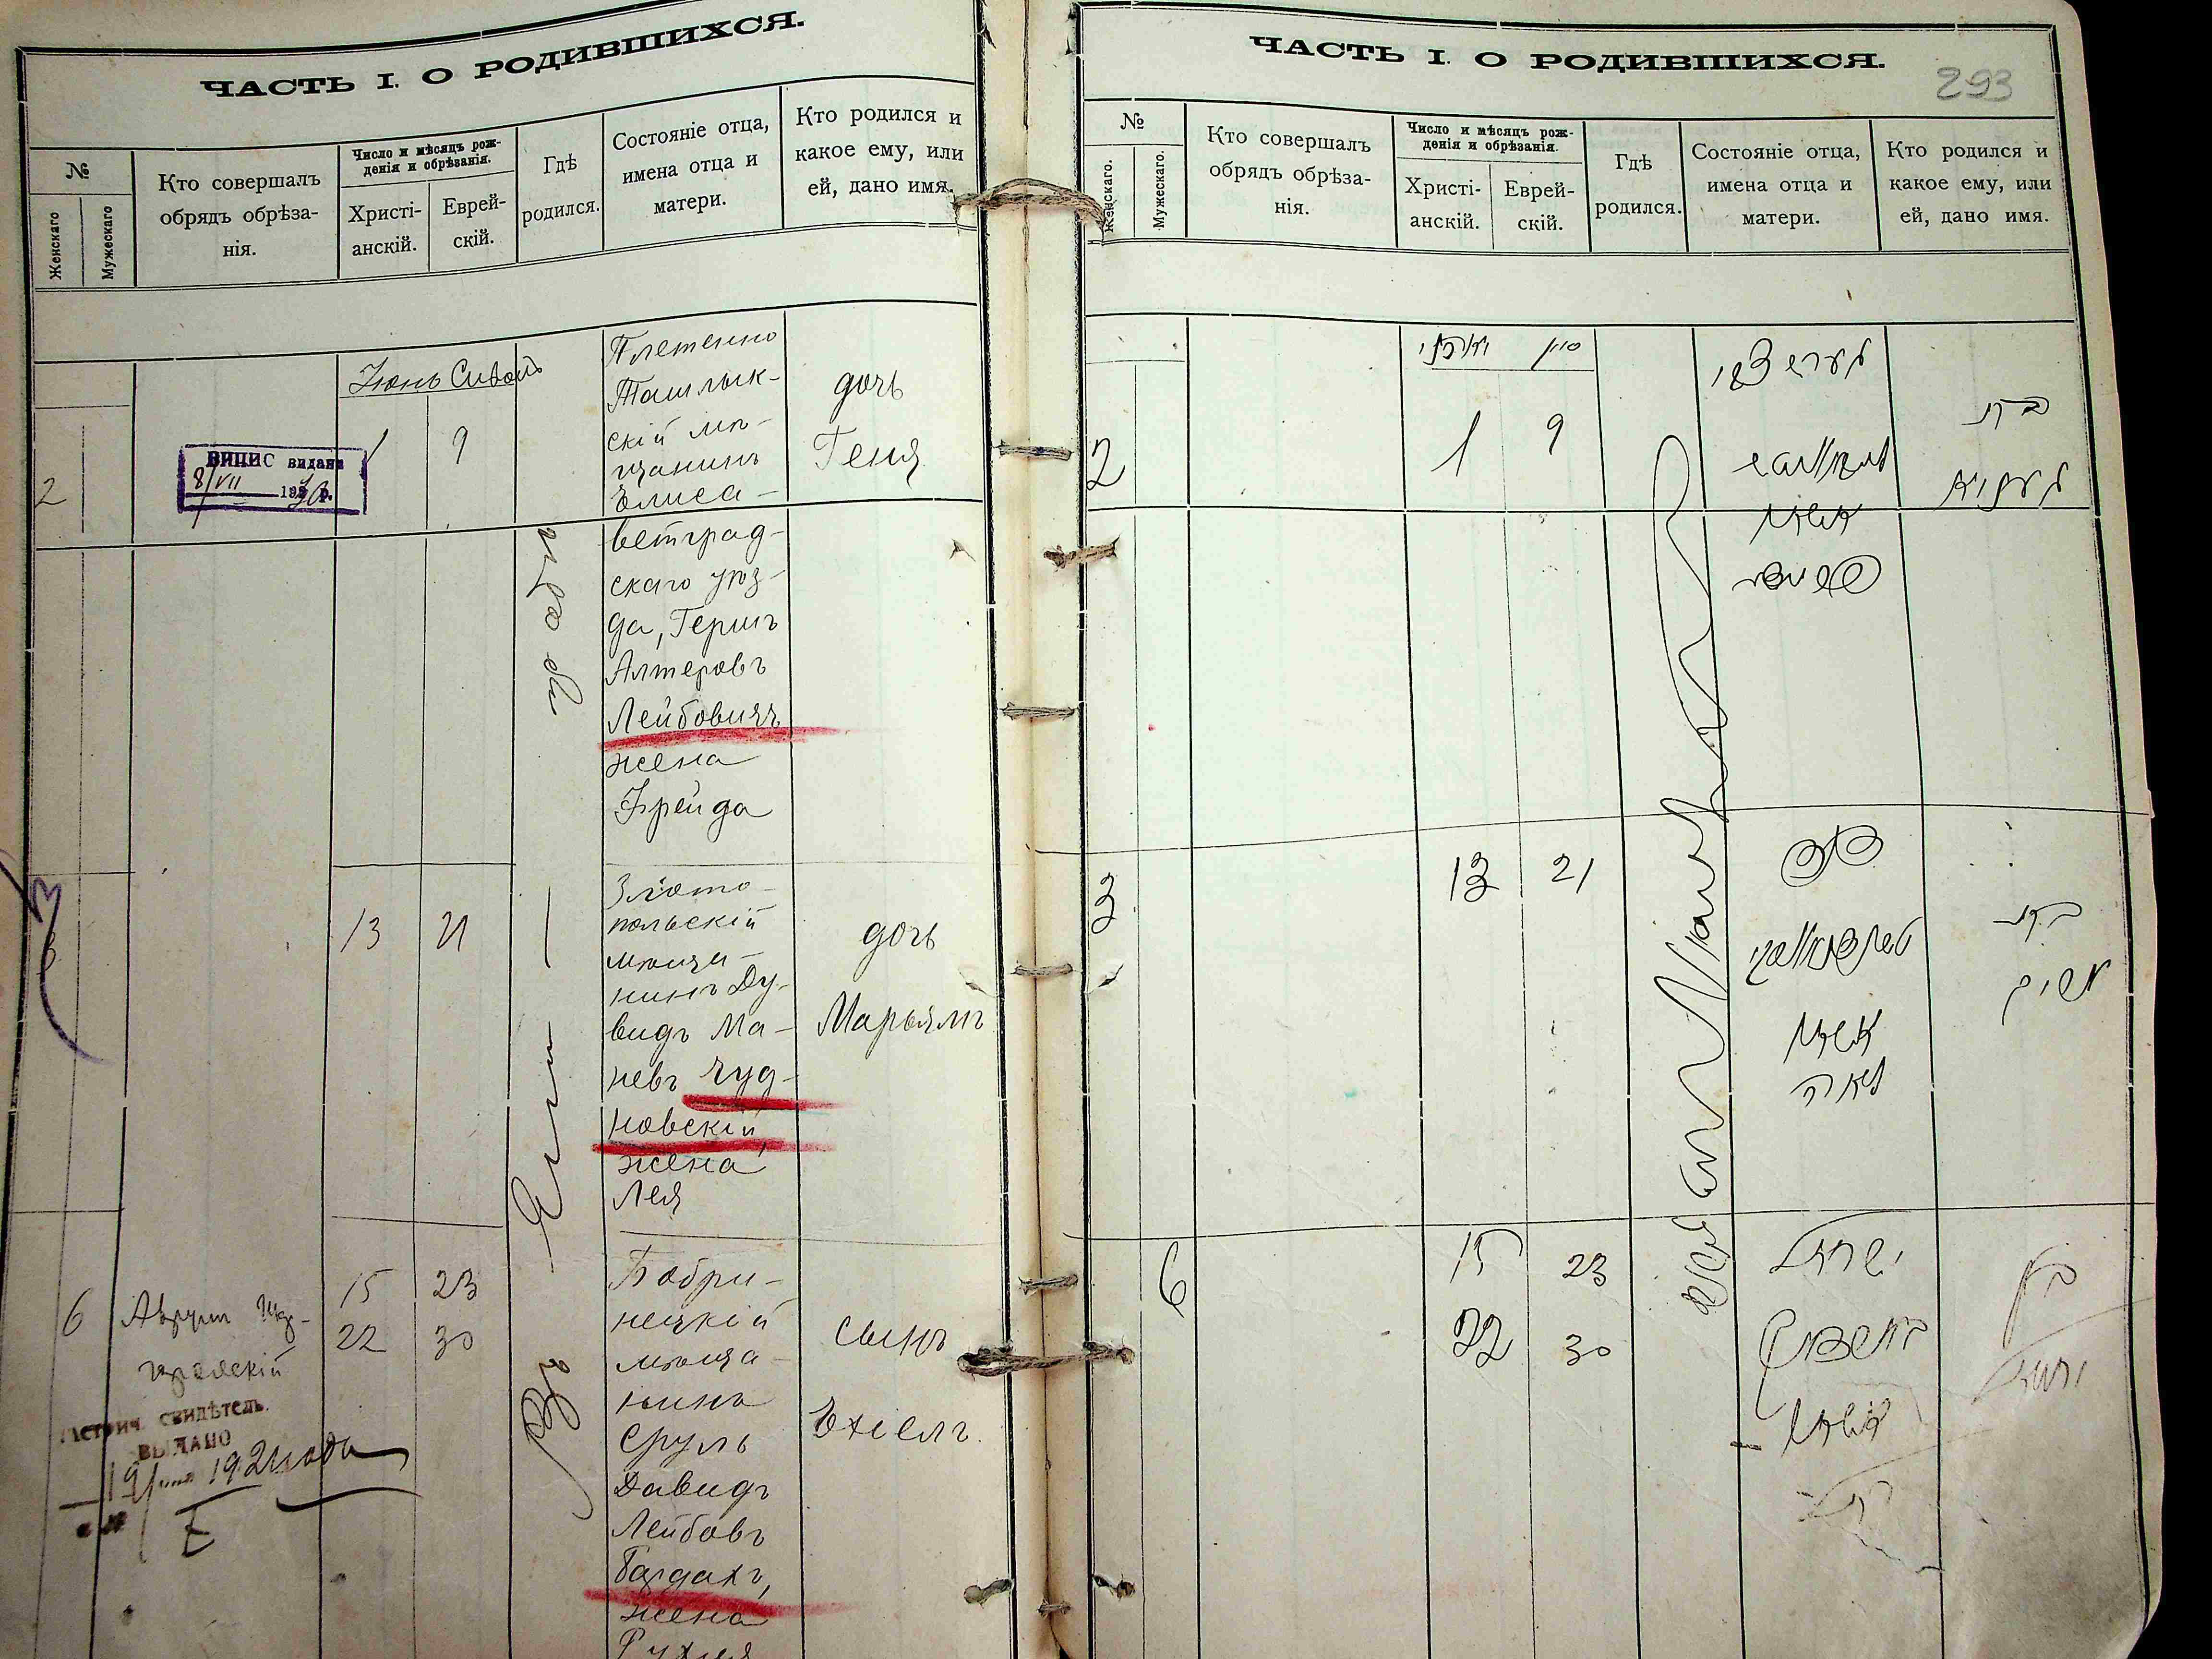 ЧАСТЬ I. О РОДИВШИХСЯ.
№
Женскаго
Мужескаго
Кто совершалъ
обрядъ обрѣза-
нія.
Число и мѣсяцъ рож-
денія и обрѣзанія.
Христі-
анскій.
Еврей-
скій.
Гдѣ
родился.
Состояніе отца,
имена отца и
матери.
Кто родился и
какое ему, или
ей, дано имя.
Іюнь Сивонъ
2
ВИПИС видано
8/VII 1930 р.
1
9
Плетенно
Ташлык-
скій мѣ-
щанинъ
Елиса-
ветград-
скаго уѣз-
да, Гершъ
Алтеровъ
Лейбовичъ
жена
Фрейда
дочь
Геня
3
13
21
Злато-
польскій
мѣща-
нинъ Ду-
видъ Ма-
невъ Чуд-
новскій,
жена
Лея
дочь
Марьямъ
6
Аврумъ
15
23
22
30
Метрич. свидѣтель.
ВЫДАНО
19 1921 года
Бобри-
нецкій
мѣща-
нинъ
Сруль
Давидъ
Лейбовъ
Бардахъ,
жена
Рухля
сынъ
Ехіелъ
Въ
ЧАСТЬ I. О РОДИВШИХСЯ.
293
№
Женскаго.
Мужескаго.
Кто совершалъ
обрядъ обрѣза-
нія.
Число и мѣсяцъ рож-
денія и обрѣзанія.
Христі-
анскій.
Еврей-
скій.
Гдѣ
родился.
Состояніе отца,
имена отца и
матери.
Кто родился и
какое ему, или
ей, дано имя.
סיון
2
1
9
אשתו
בת
3
13
21
אשתו
לאה
בת
6
15
23
22
30
ישראל
אשתו
בן